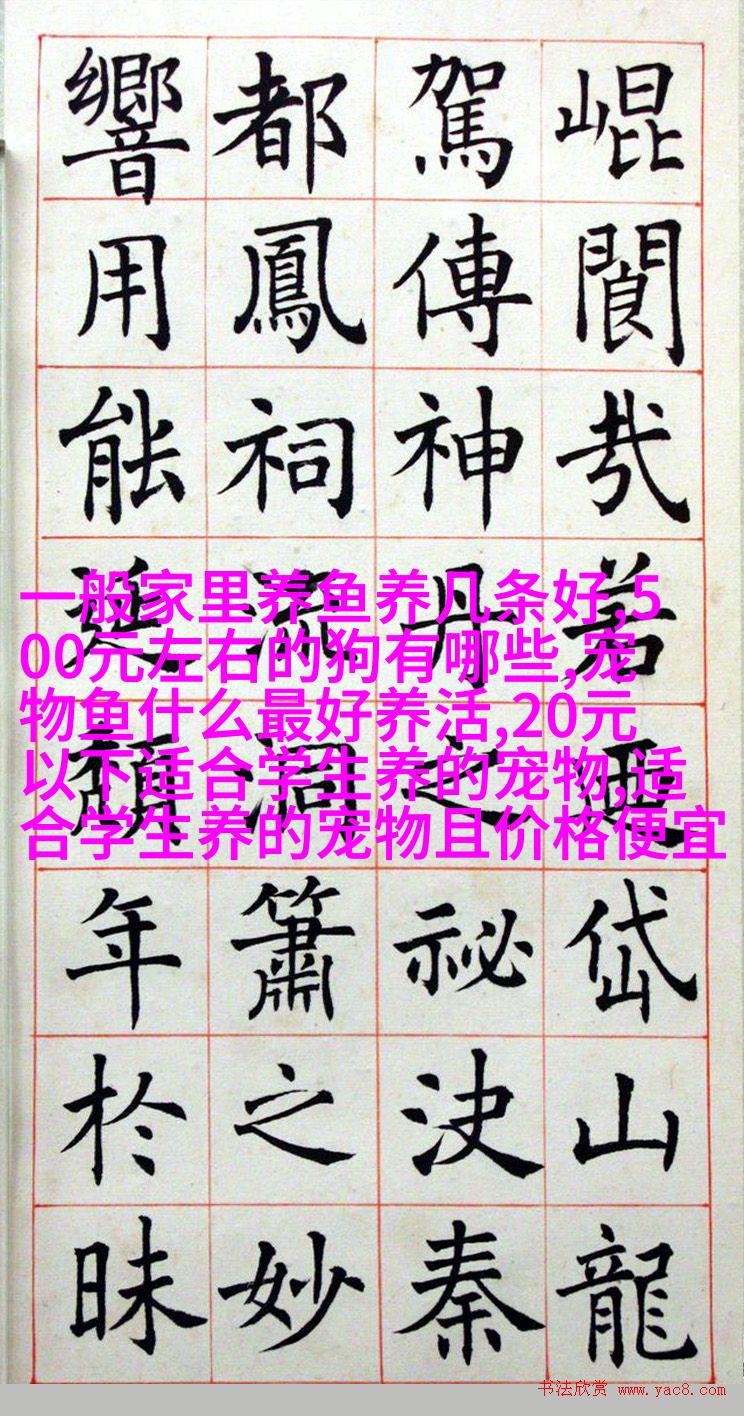 崐閬若岱山龍
駕傳神丹之祕決秦
都鳳祠簫之妙
響用能年於昧
一般家里养鱼养几条好,5
00元左右的狗有哪些,宠
物鱼什么最好养活,20元
以下适合学生养的宠物,适
合学生养的宠物且价格便宜
书法欣赏 www.yac8.com